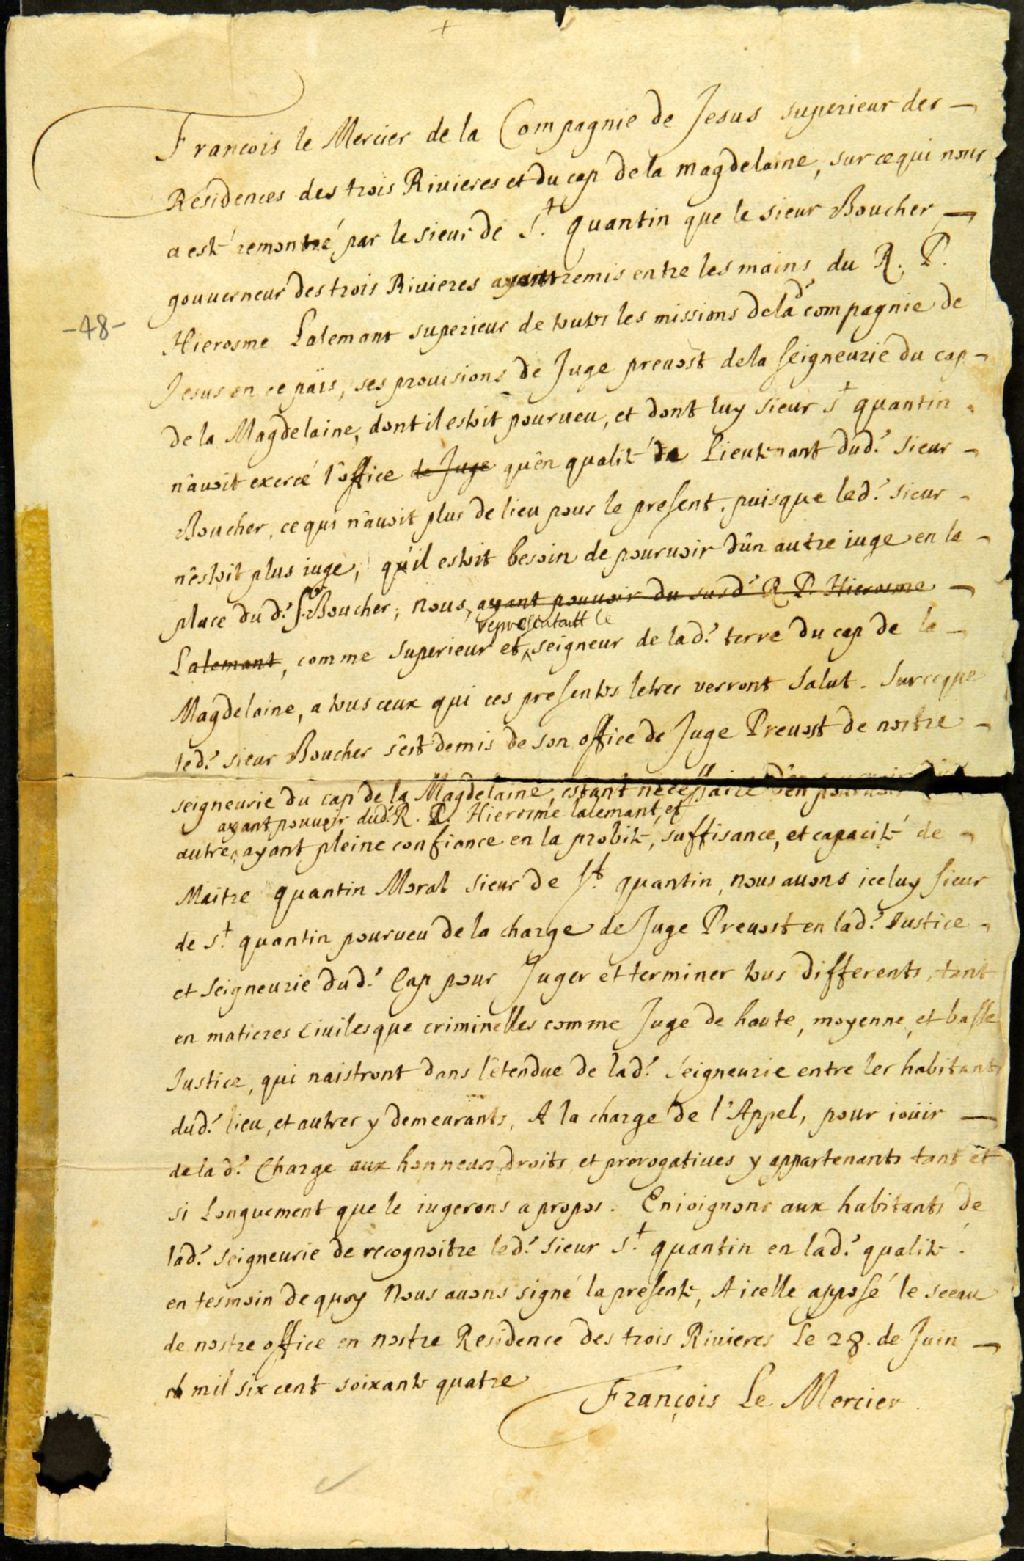 Francois le Mercier de la Compagnie de Jesus superieur des
Residences des trois Rivieres et du cap de la magdelaine, sur ce qui nous
a esté remontré par le sieur de St. quantin que le sieur Boucher
gouverneur des trois Rivieres ayant remis entre les mains du R. P.
-48-
Hierosme Lalemant superieur de touts les missions de lad compagnie de
Jesus en ce païs, ses provisions de Juge prevost de la seigneurie du cap
de la Magdelaine, dont il estoit pourveu, et dont luy sieur St quantin
n'avoit excercé l'office de Juge qu'en qualité de Lieutenant dud. sieur
Boucher, ce qui n'avoit plus de lieu pour le present, puisque led. sieur
n'estoit plus iuge, qu'il estoit besoin de pourvoir d'un autre iuge en la
place dud. Sr Boucher; nous, ayant pouvoir du susd. R. P. Hierosme
representant le
Lalemant, comme superieur et seigneur de lad. terre du cap de la
Magdelaine, a tous ceux qui ces presentes letres verront salut. Sur ce que
led. sieur Boucher s'est demis de son office de Juge Prevost de nostre
seigneurie du cap de la Magdelaine, estant necessaire d'en pourvoir
ayant pouvoir dud. R. P. Hierosme lalemant, et
autre, ayant pleine confiance en la probité, suffisance, et capacité de
Maitre quantin Moral sieur de St. quantin, nous avons iceluy sieur
de St quantin pourveu de la charge de Juge Prevost en lad. Justice
et seigneurie dud. Cap pour Juger et terminer tous differents, tant
en matieres Civiles que criminelles comme Juge de haute, moyenne, et basse
Justice, qui naistront dans l'étendue de lad. seigneurie entre les habitants
dud. lieu, et autres y demeurants, A la charge de l'Appel, pour ioüir
de la d. Charge aux honneurs, droits et prerogatives y appartenants tant et
si Longuement que le iugerons a propos. Enioignons aux habitants de
lad. seigneurie de recognoitre led. sieur St quantin en lad. qualité.
en tesmoin de quoy Nous avons signé la presente, A icelle apposé le sceau
de nostre office en nostre Residence des trois Rivieres le 28. de Juin
mil six cent soixante quatre
François Le Mercier